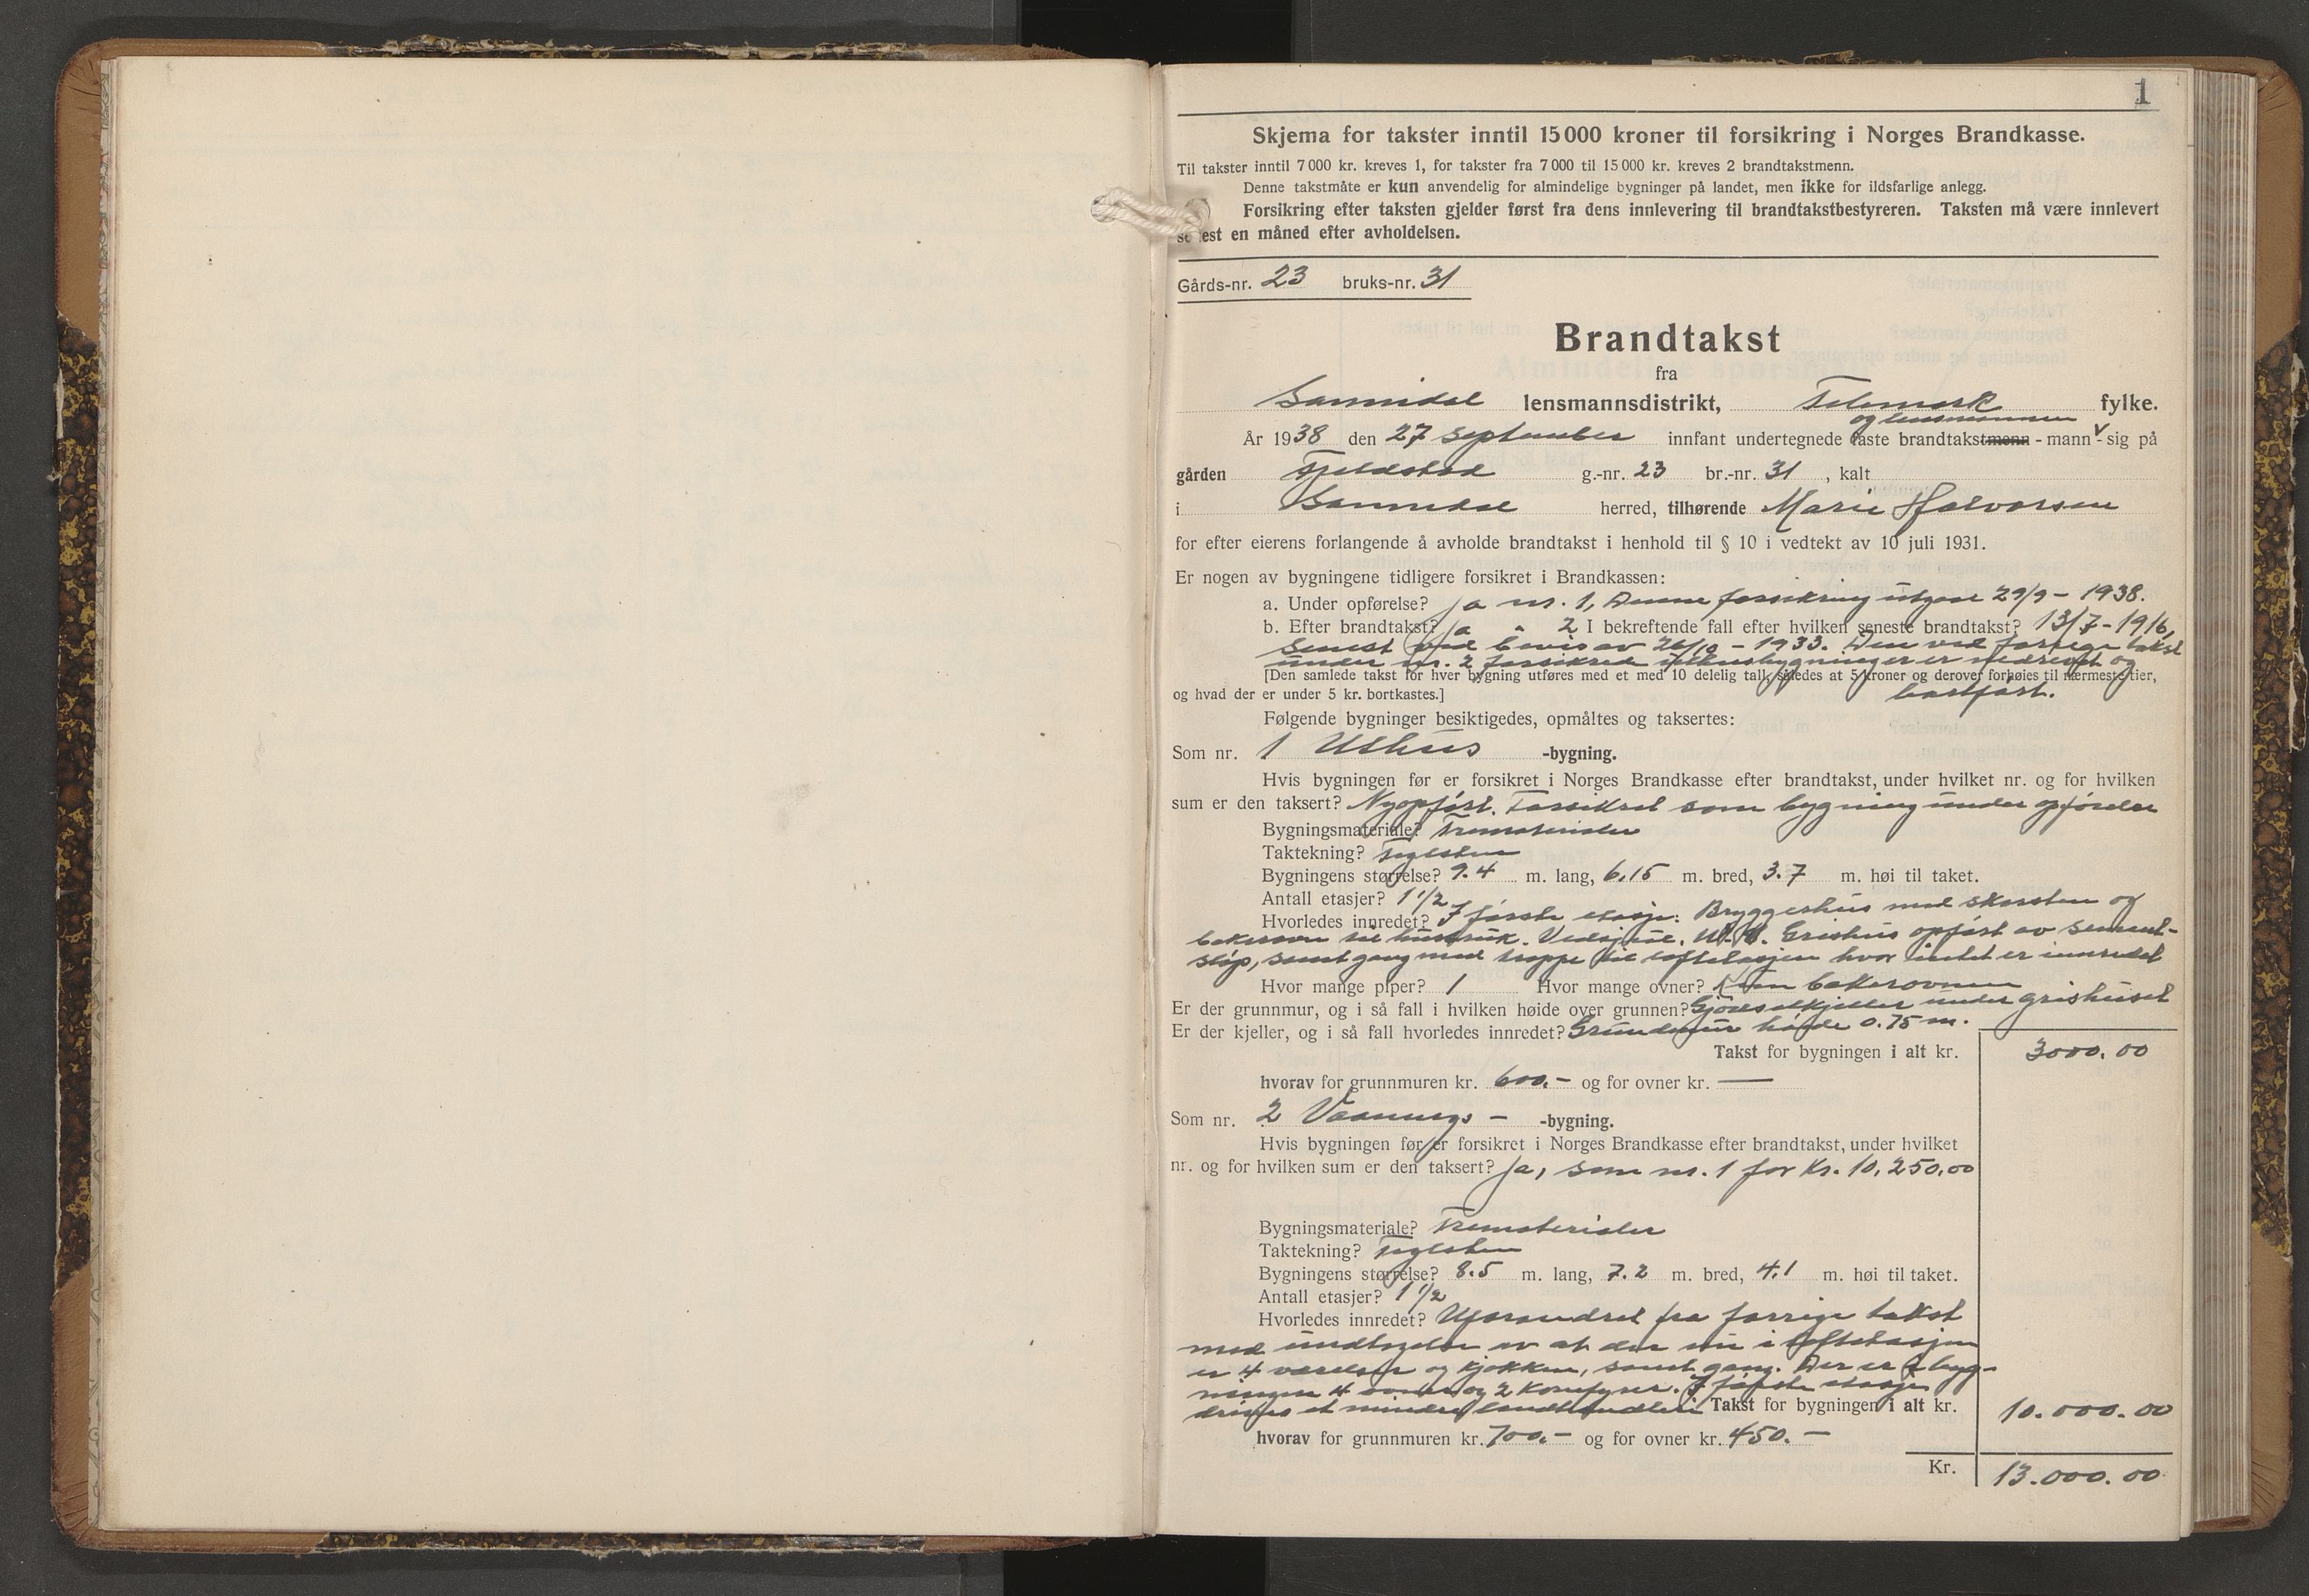 1
Skjema for takster inntil 15 000 kroner til forsikring i Norges Brandkasse.
Til takster inntil 7 000 kr. kreves 1, for takster fra 7 000 til 15 000 kr. kreves 2 brandtakstmenn.
Denne takstmåte er kun anvendelig for almindelige bygninger på landet, men ikke for ildsfarlige anlegg.
Forsikring efter taksten gjelder først fra dens innlevering til brandtakstbestyreren. Taksten må være innlevert
senest en måned efter avholdelsen.
Gårds-nr. 23 bruks-nr. 31
Brandtakst
fra
Sannidal lensmannsdistrikt, Telemark fylke.
og lensmannen
År 1938 den 27 september innfant undertegnede faste brandtakstmenn - mann - sig på
gården Fjeldstad g.-nr. 23 br.-nr. 31 , kalt
i Sannidal herred, tilhørende Marie Halvorsen
for efter eierens forlangende å avholde brandtakst i henhold til § 10 i vedtekt av 10 juli 1931.
Er nogen av bygningene tidligere forsikret i Brandkassen:
a. Under opførelse? Ja nr. 1, Denne forsikring utgaar 29/9 - 1938.
b. Efter brandtakst? Ja " 2 I bekreftende fall efter hvilken seneste brandtakst? 13/7 - 1916,
senest ved bevis av 26/10 - 1933. Den ved forrige takst
under nr. 2 forsikrede uthusbygninger er nedrevet og
[Den samlede takst for hver bygning utføres med et med 10 delelig tall, således at 5 kroner og derover forhøies til nærmeste tier,
og hvad der er under 5 kr. bortkastes.] bortført.
Følgende bygninger besiktigedes, opmåltes og taksertes:
Som nr. 1 Uthus -bygning.
Hvis bygningen før er forsikret i Norges Brandkasse efter brandtakst, under hvilket nr. og for hvilken
sum er den taksert? Nyopført. Forsikret som bygning under opførelse
Bygningsmateriale? Trematerialer
Taktekning? Teglsten
Bygningens størrelse? 9.4 m. lang, 6,15 m. bred, 3.7 m. høi til taket.
Antall etasjer? 1 1/2
Hvorledes innredet? I første etasje: Bryggerhus med skorsten og
bakerovn til husbruk. Vedskjul, W.C. Grishus opført av sement-
støp, samt gang med trappe til loftetasjen hvor intet er innredet
Hvor mange piper? 1 Hvor mange ovner? Kun bakerovnen
Er der grunnmur, og i så fall i hvilken høide over grunnen? Gjødselkjeller under grishuset
Er der kjeller, og i så fall hvorledes innredet? Grundmur høide 0.75 m.
Takst for bygningen i alt kr. 3000.00
hvorav for grunnmuren kr. 600.- og for ovner kr. —
Som nr. 2 Vaanings - -bygning.
Hvis bygningen før er forsikret i Norges Brandkasse efter brandtakst, under hvilket
nr. og for hvilken sum er den taksert? Ja, som nr. 1 for kr. 10,250,00
Bygningsmateriale? Trematerialer
Taktekning? Teglsten
Bygningens størrelse? 8.5 m. lang, 7.2 m. bred, 4.1 m. høi til taket.
Antall etasjer? 1 1/2
Hvorledes innredet? Uforandret fra forrige takst
med undtagelse av at der nu i loftetasjen
er 4 værelser og kjøkken, samt gang. Der er i byg-
ningen 4 ovner og 2 komfyrer. I første etasje
drives et mindre landhandleri Takst for bygningen i alt kr. 10.000.00
hvorav for grunnmuren kr. 700.- og for ovner kr. 450.-
Kr. 13.000.00